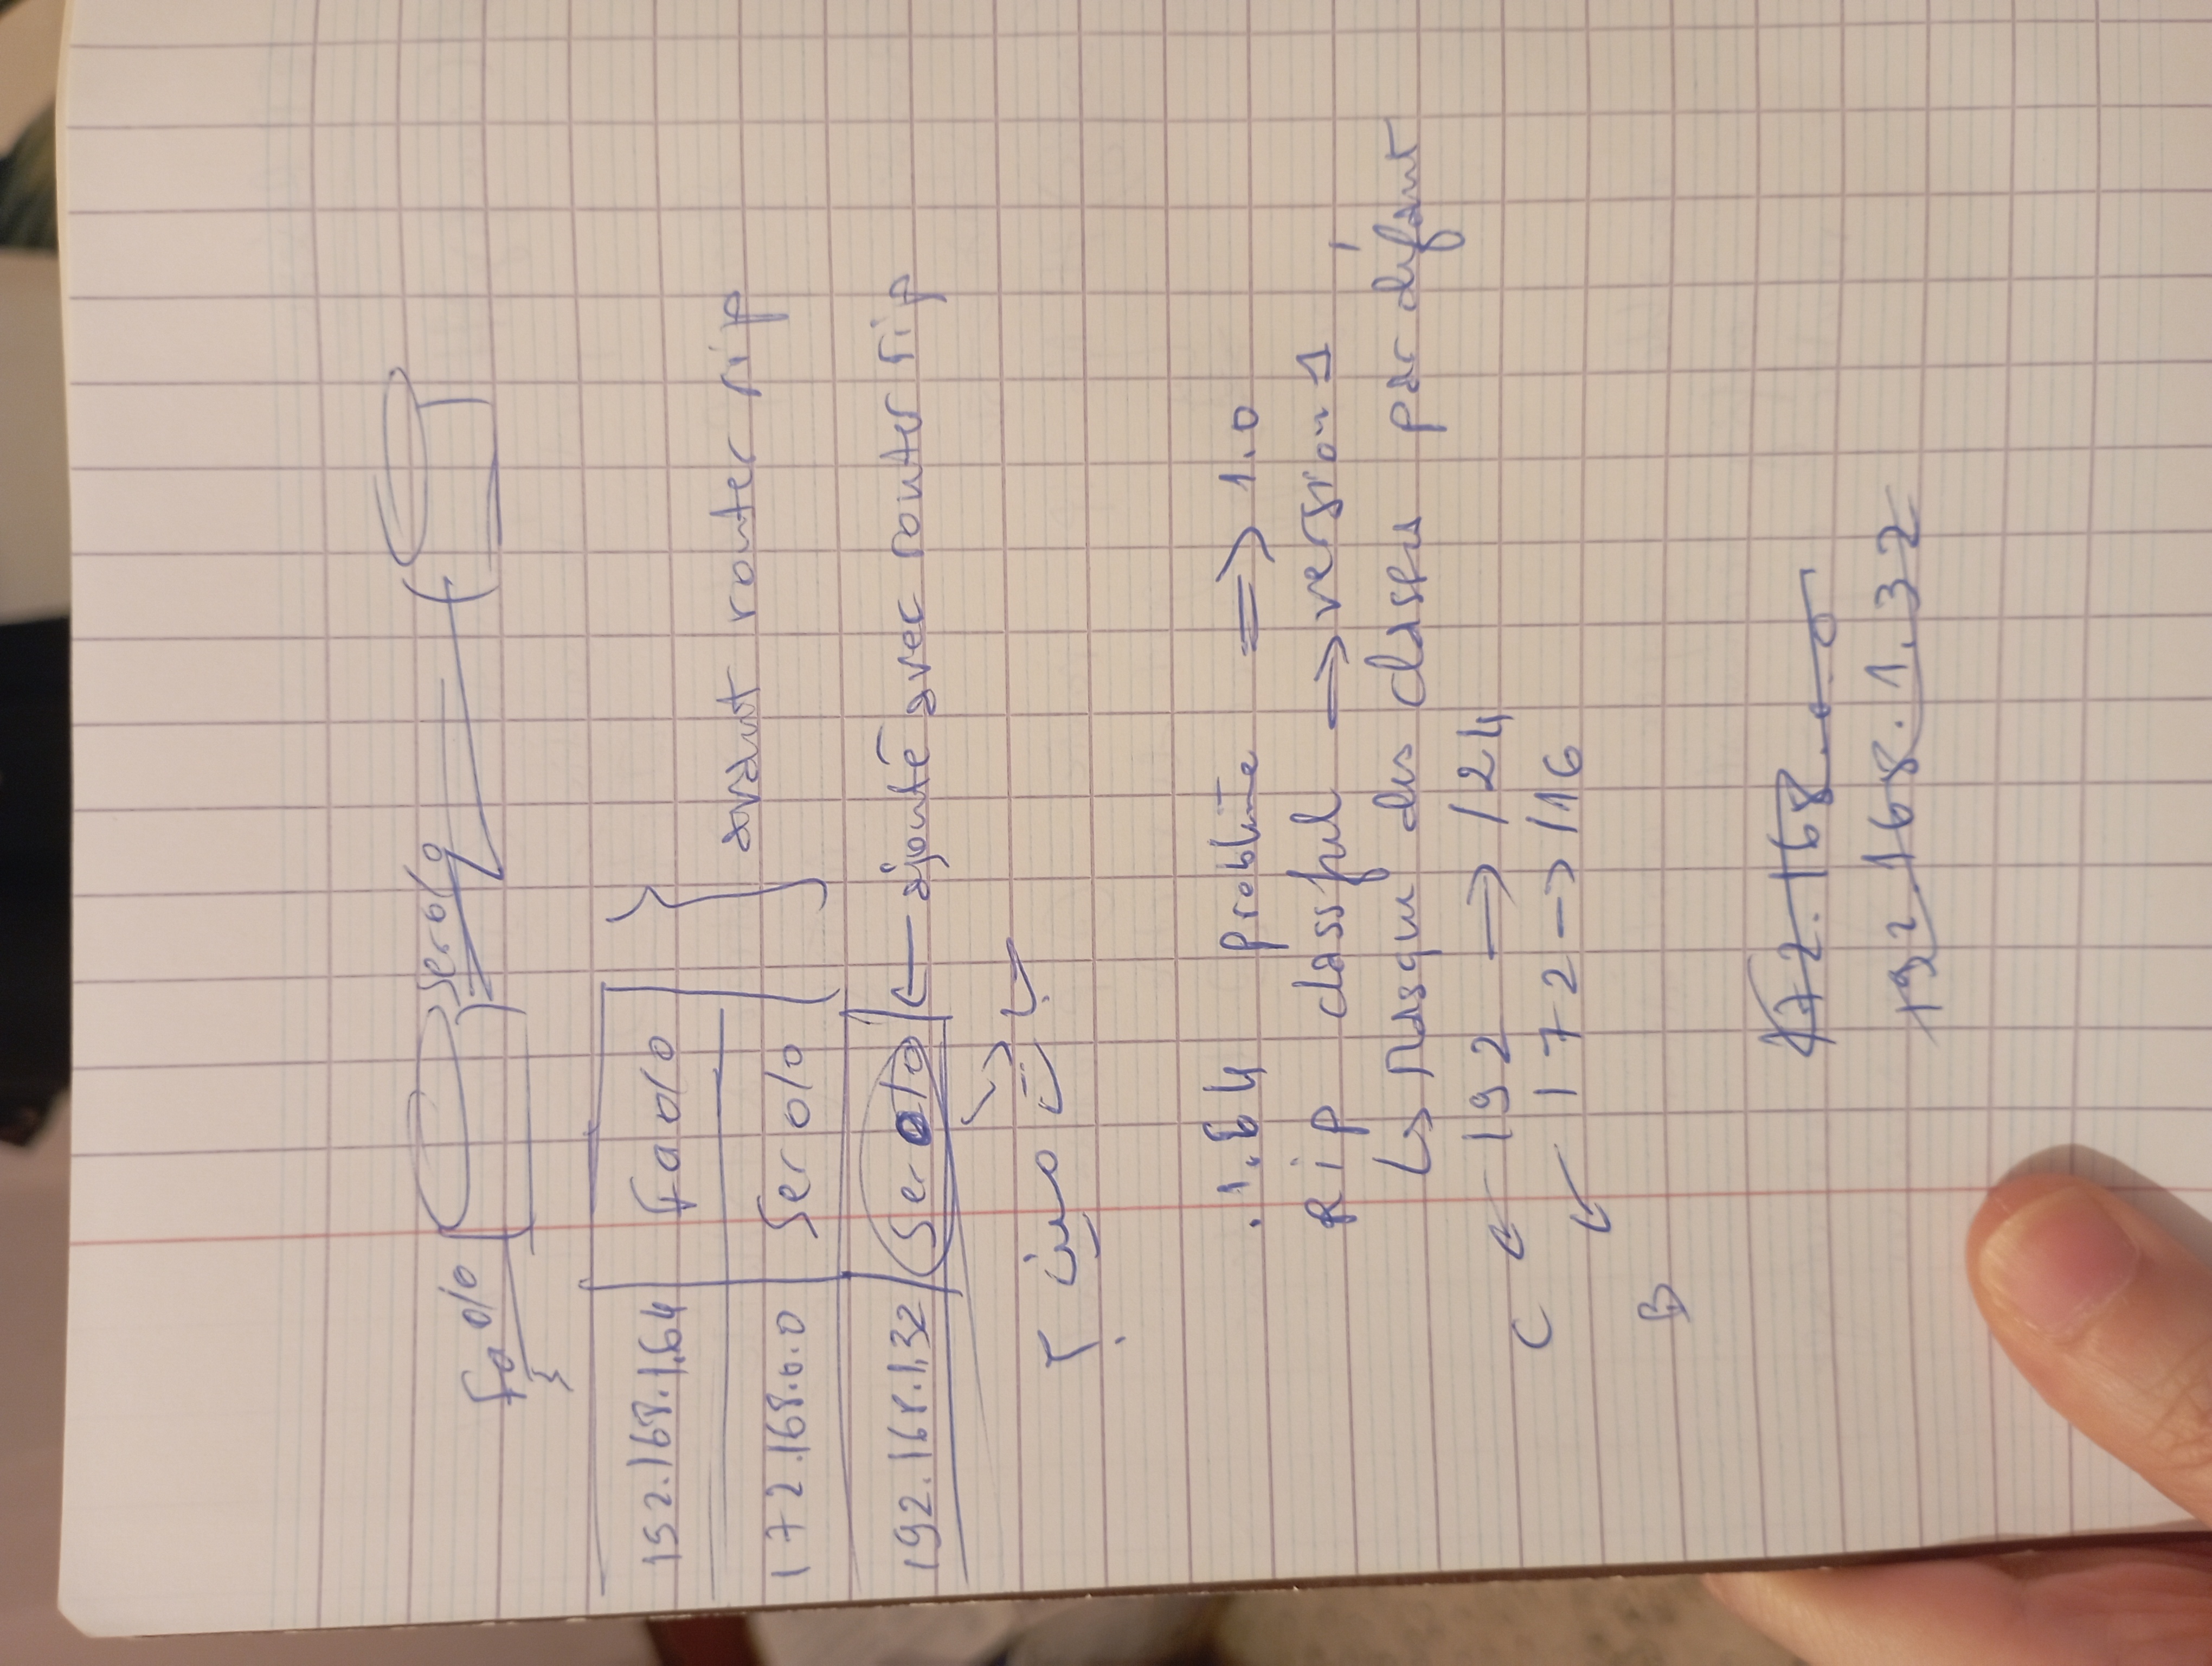 Fa 0/0
Ser 0/0
192.168.1.64 Fa 0/0
172.168.0.0 Ser 0/0
avant router rip
192.168.1.32 Ser 0/0 ← ajouté avec router rip
جات مين ؟
.1.64 problème => 1.0
Rip classful → version 1
↳ Masque des classes par défaut
C ← 192 → /24
B ← 172 → /16
172.168.0.0
192.168.1.32